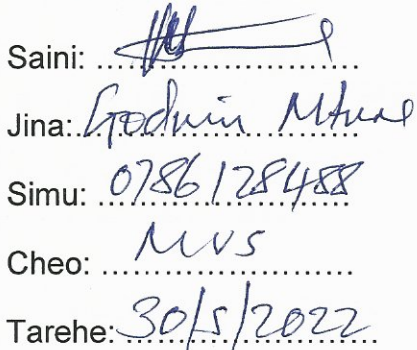 Saini: ..............................
Jina: Godwin ..............................
Simu: 0786128488
Cheo: MVS
Tarehe: 30/5/2022